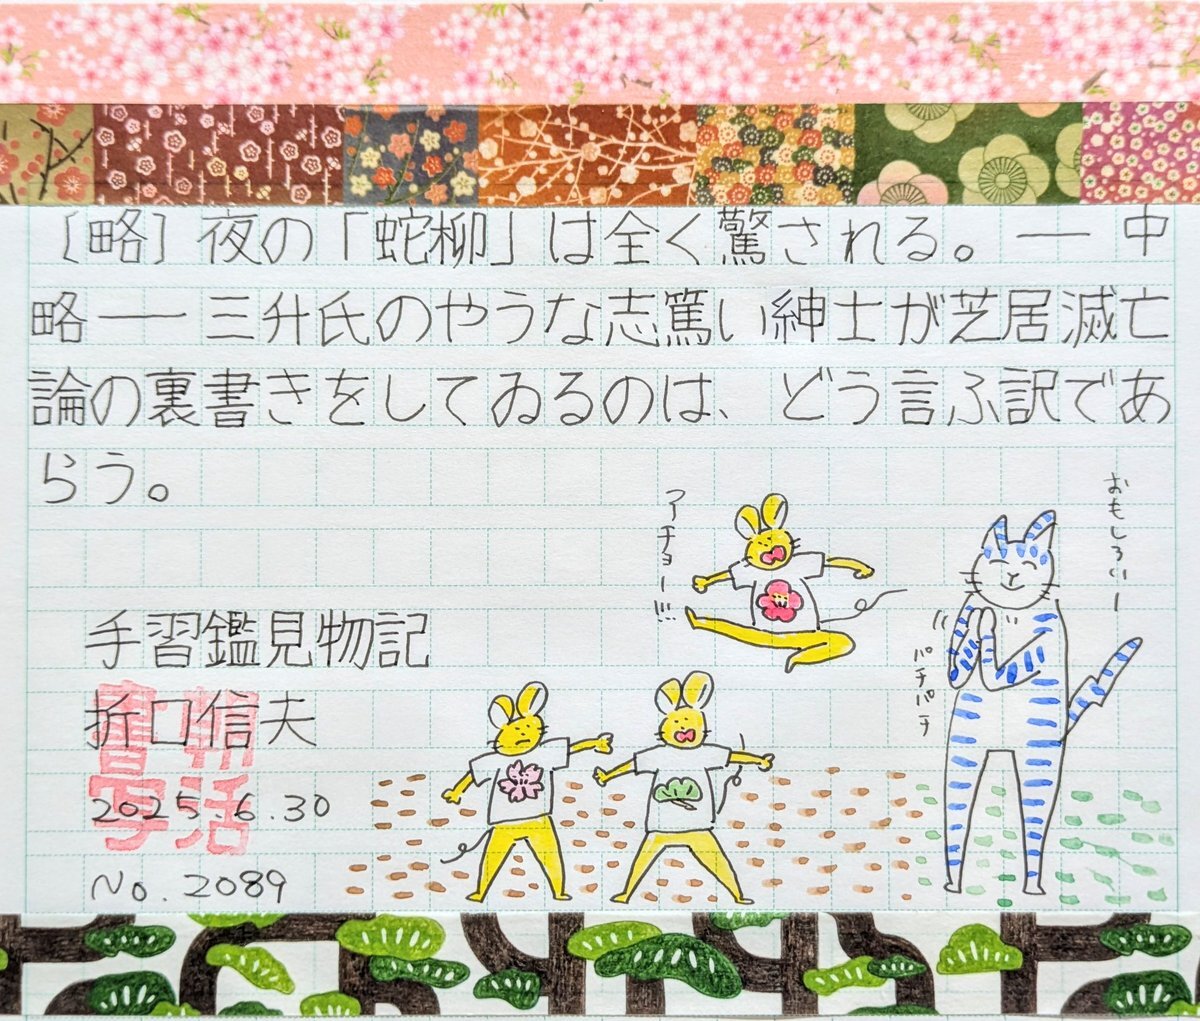 〔略〕夜の「蛇柳」は全く驚される。― 中
略 ― 三升氏のやうな志篤い紳士が芝居滅亡
論の裏書きをしてゐるのは、どう言ふ訳であ
らう。
アーチョー!!!
おもしろいー
パチパチ
手習鑑見物記
折口信夫
2025.6.30
No. 2089